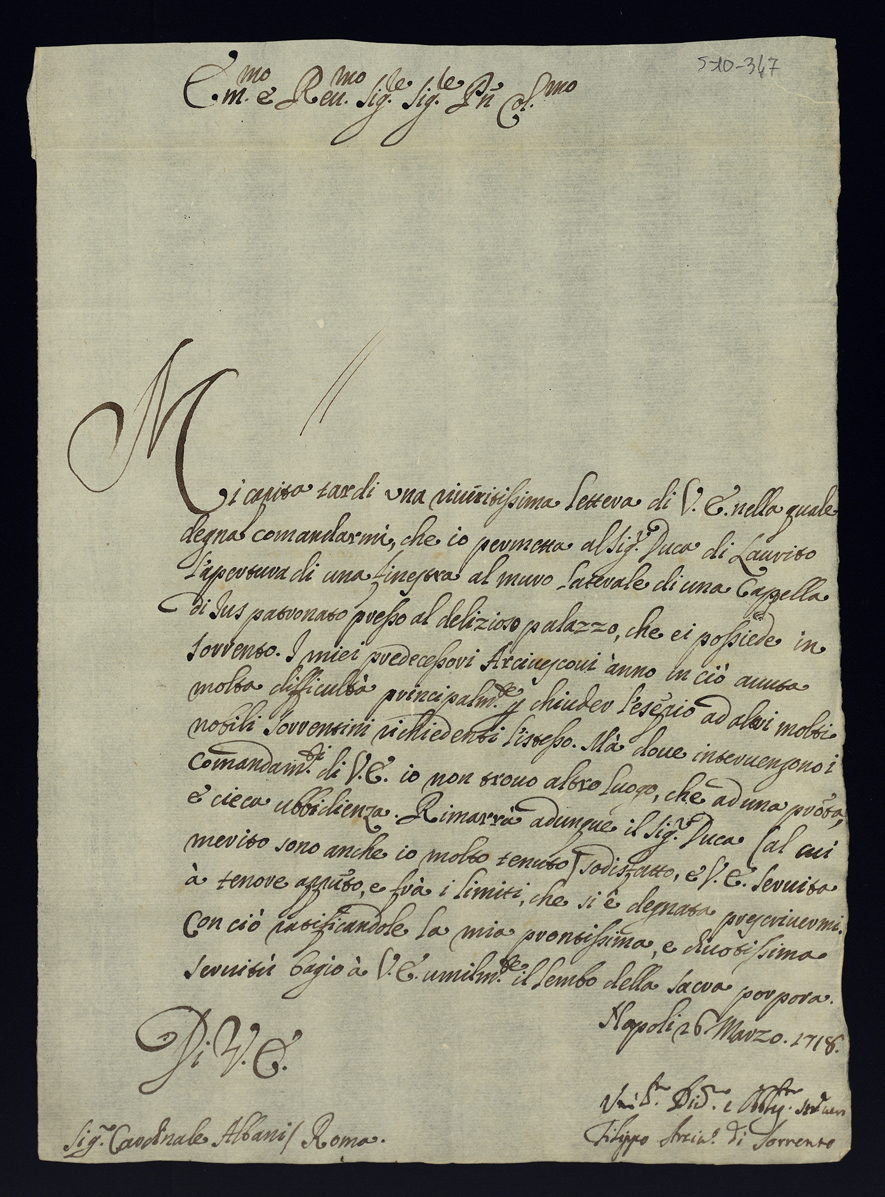 5-10-347
Em.mo e Reu.mo Sig.re Sig.re Prn Col.mo
Mi capita tardi una riueritissima lettera di V. E. nella quale
degna comandarmi, che io permetta al Sig.r Duca di Laurito
l'apertura di una finestra al muro laterale di una Cappella
di Jus patronato presso al delizioso palazzo, che ei possiede in
Sorrento. I miei predecessori Arciuescoui ànno in ciò auuta
molta difficultà principalm.te p chiuder l'esempio ad altri molti
nobili Sorrentini richiedenti l'istesso. Mà doue interuengono i
comandam.ti di V. E. io non trouo altro luogo, che ad una pronta,
e cieca ubbidienza. Rimarrà adunque il Sig.r Duca (al cui
merito sono anche io molto tenuto) sodisfatto, e V. E. seruita
à tenore appũto, e frà i limiti, che si è degnata prescriuermi.
Con ciò ratificandole la mia prontissima, e diuotissima
seruitù bagio à V. E. umilm.te il lembo della sacra porpora.
Napoli 26 Marzo. 1718.
Di V. E.
Filippo Arciu.o di Sorrento
Sig.r Cardinale Albani / Roma.